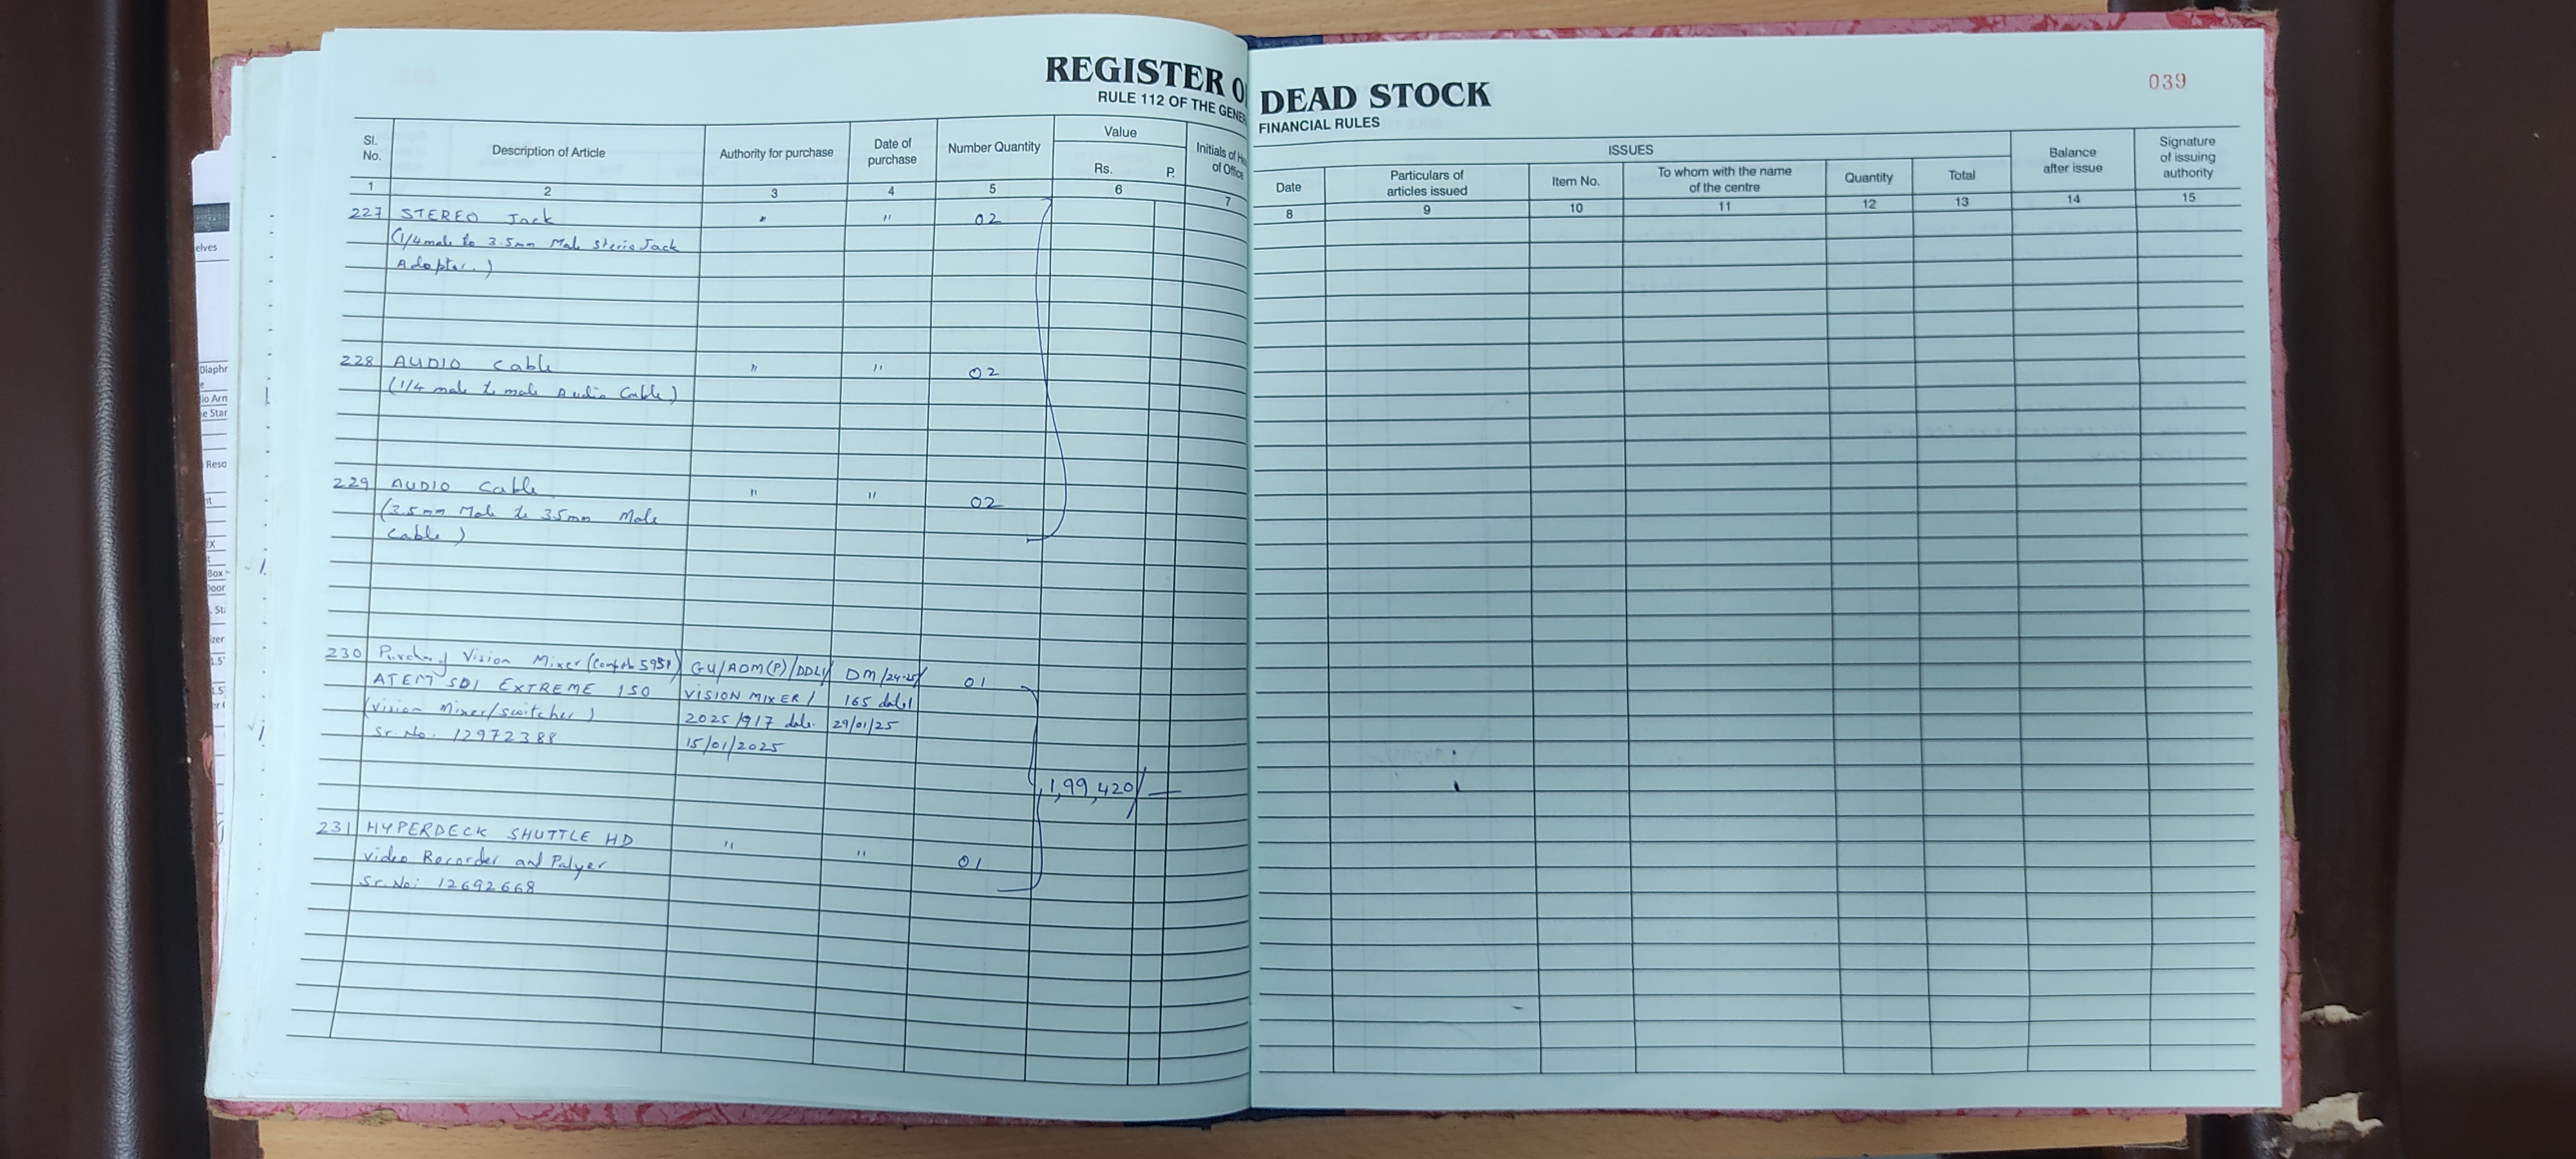 REGISTER O
RULE 112 OF THE GENE
Sl. No.
Description of Article
Authority for purchase
Date of purchase
Number Quantity
Value
Rs. P.
Initials of H
of Office
1 2 3 4 5 6 7
227 STEREO Jack " 02
(1/4 male to 3.5mm Male Sterio Jack
Adapter.)
228 AUDIO Cable " " 02
(1/4 male to male Audio Cable)
229 AUDIO Cable " " 02
(3.5mm Male to 3.5mm Male
Cable)
230 Vision Mixer GU/ADM(P)/DDLY DM/24-25/ 01
ATEM SDI EXTREME ISO VISION MIXER/ 165 dated
(Vision Mixer/switcher) 2025/917 date. 29/01/25
Sr. No. 12972388 15/01/2025
1,99,420/—
231 HYPERDECK SHUTTLE HD " " 01
Video Recorder and Palyer
Sr. No: 12692668
DEAD STOCK
FINANCIAL RULES
039
ISSUES
Date
Particulars of articles issued
Item No.
To whom with the name of the centre
Quantity
Total
Balance after issue
Signature of issuing authority
8 9 10 11 12 13 14 15
elves
Diaphr
io Arn
e Star
Reso
Box